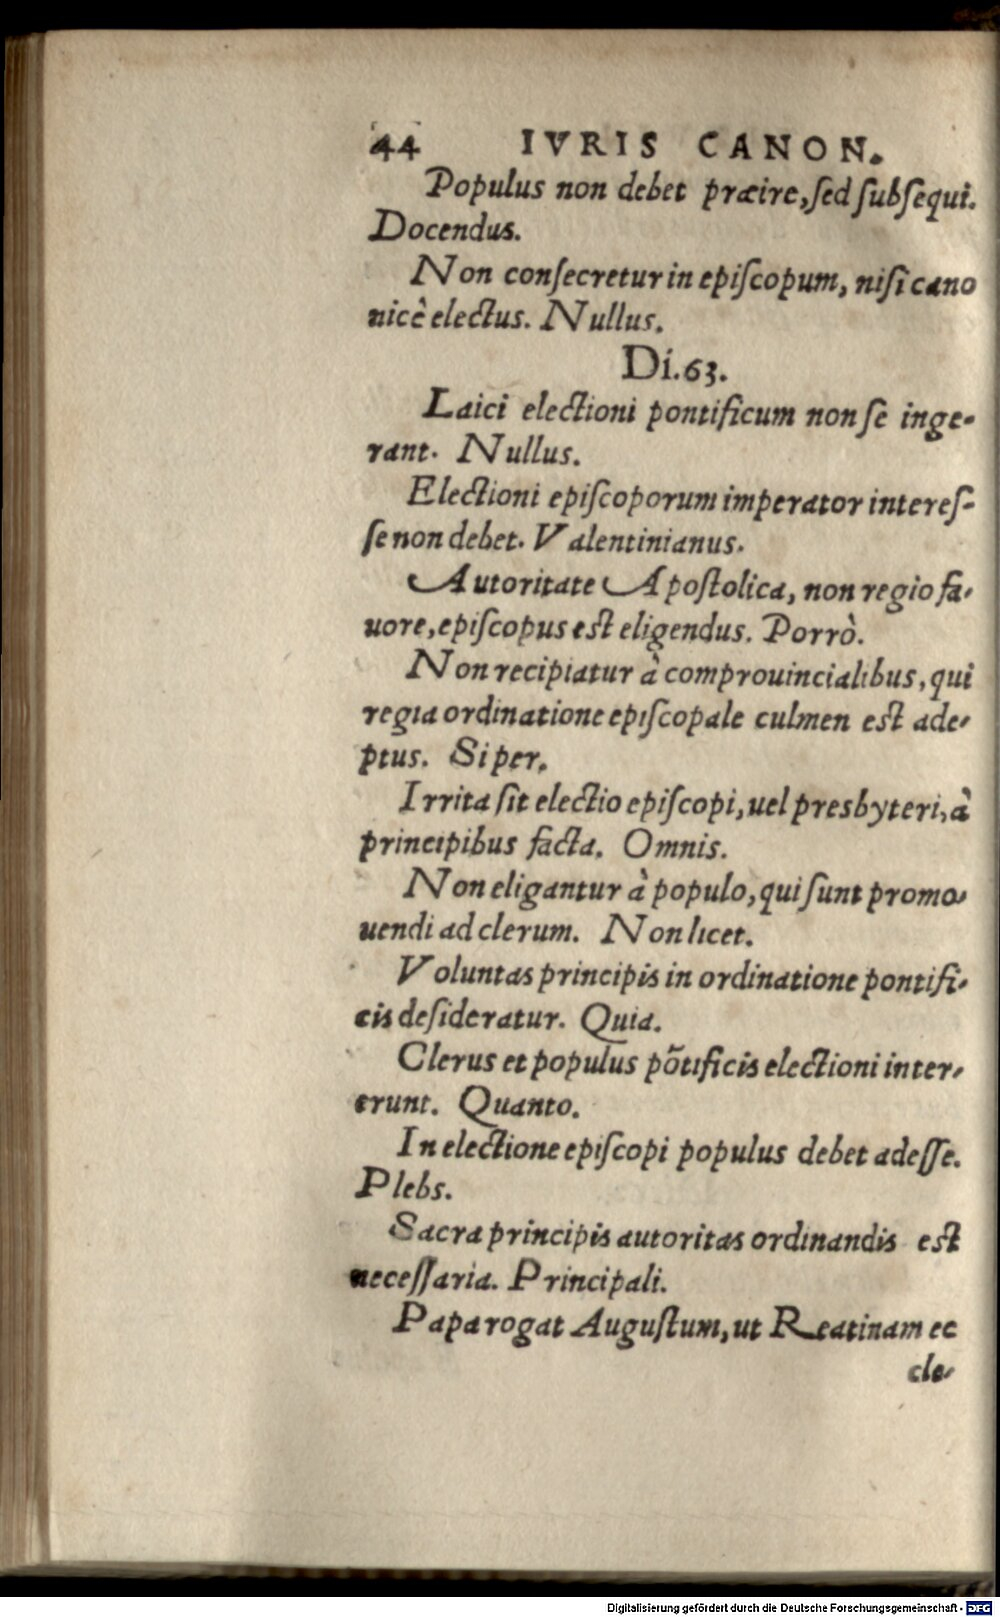 44 IVRIS CANON.
Populus non debet præire, ſed ſubſequi.
Docendus.
Non conſecretur in epiſcopum, niſi cano
nicè electus. Nullus.
Di.63.
Laici electioni pontificum non ſe inge-
rant. Nullus.
Electioni epiſcoporum imperator intereſ-
ſe non debet. Valentinianus.
Autoritate Apoſtolica, non regio fa-
uore, epiſcopus eſt eligendus. Porrò.
Non recipiatur à comprouincialibus, qui
regia ordinatione epiſcopale culmen eſt ade-
ptus. Si per.
Irrita ſit electio epiſcopi, uel presbyteri, à
principibus facta. Omnis.
Non eligantur à populo, qui ſunt promo-
uendi ad clerum. Non licet.
Voluntas principis in ordinatione pontifi-
cis deſideratur. Quia.
Clerus et populus põtificis electioni inter-
erunt. Quanto.
In electione epiſcopi populus debet adeſſe.
Plebs.
Sacra principis autoritas ordinandis eſt
neceſſaria. Principali.
Papa rogat Auguſtum, ut Reatinam ec
cle-
Digitalisierung gefördert durch die Deutsche Forschungsgemeinschaft - DFG